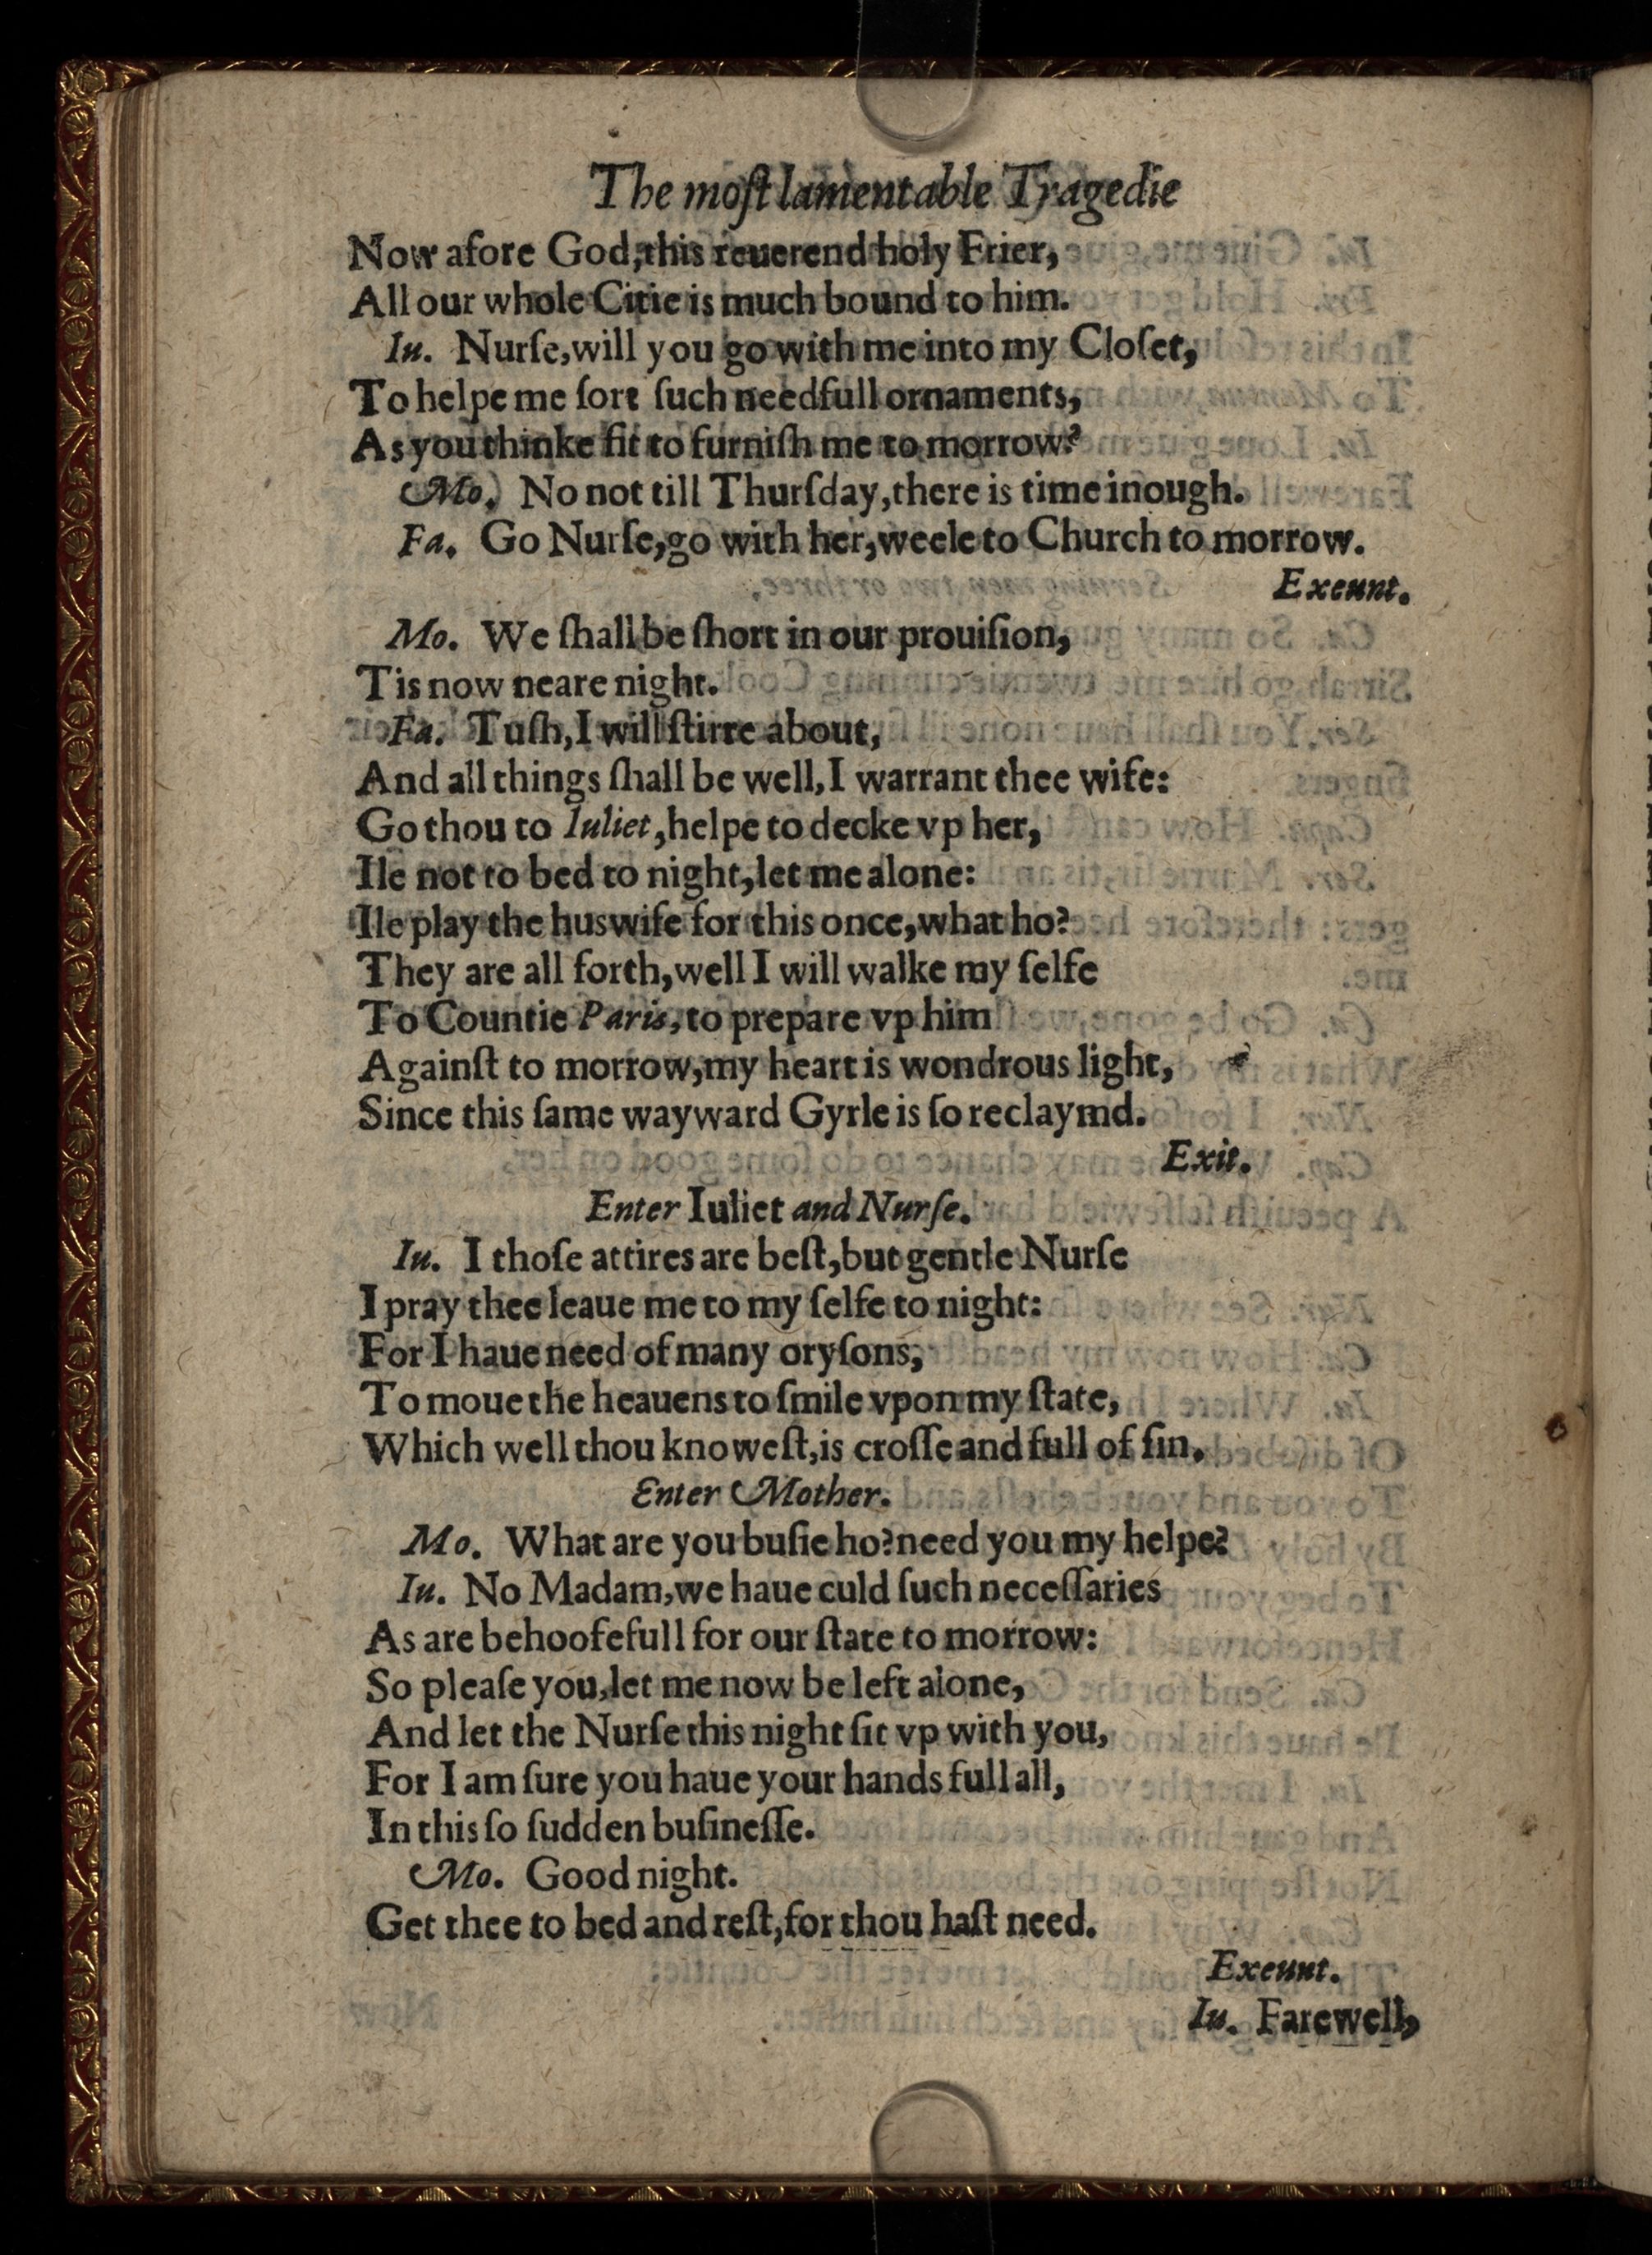 The moſt lamentable Tragedie
Now afore God, this reuerend holy Frier,
All our whole Citie is much bound to him.
Iu. Nurſe, will you go with me into my Cloſet,
To helpe me ſort ſuch needfull ornaments,
As you thinke fit to furniſh me to morrow?
Mo. No not till Thurſday, there is time inough.
Fa. Go Nurſe, go with her, weele to Church to morrow.
Exeunt.
Mo. We ſhall be ſhort in our prouiſion,
Tis now neare night.
Fa. Tuſh, I will ſtirre about,
And all things ſhall be well, I warrant thee wife:
Go thou to Iuliet, helpe to decke vp her,
Ile not to bed to night, let me alone:
Ile play the huswife for this once, what ho?
They are all forth, well I will walke my ſelfe
To Countie Paris, to prepare vp him
Againſt to morrow, my heart is wondrous light,
Since this ſame wayward Gyrle is ſo reclaymd.
Exit.
Enter Iuliet and Nurſe.
Iu. I thoſe attires are beſt, but gentle Nurſe
I pray thee leaue me to my ſelfe to night:
For I haue need of many oryſons,
To moue the heauens to ſmile vpon my ſtate,
Which well thou knoweſt, is croſſe and full of ſin.
Enter Mother.
Mo. What are you buſie ho? need you my helpe?
Iu. No Madam, we haue culd ſuch neceſſaries
As are behoofefull for our ſtate to morrow:
So pleaſe you, let me now be left alone,
And let the Nurſe this night ſit vp with you,
For I am ſure you haue your hands full all,
In this ſo ſudden buſineſſe.
Mo. Good night.
Get thee to bed and reſt, for thou haſt need.
Exeunt.
Iu. Farewell,